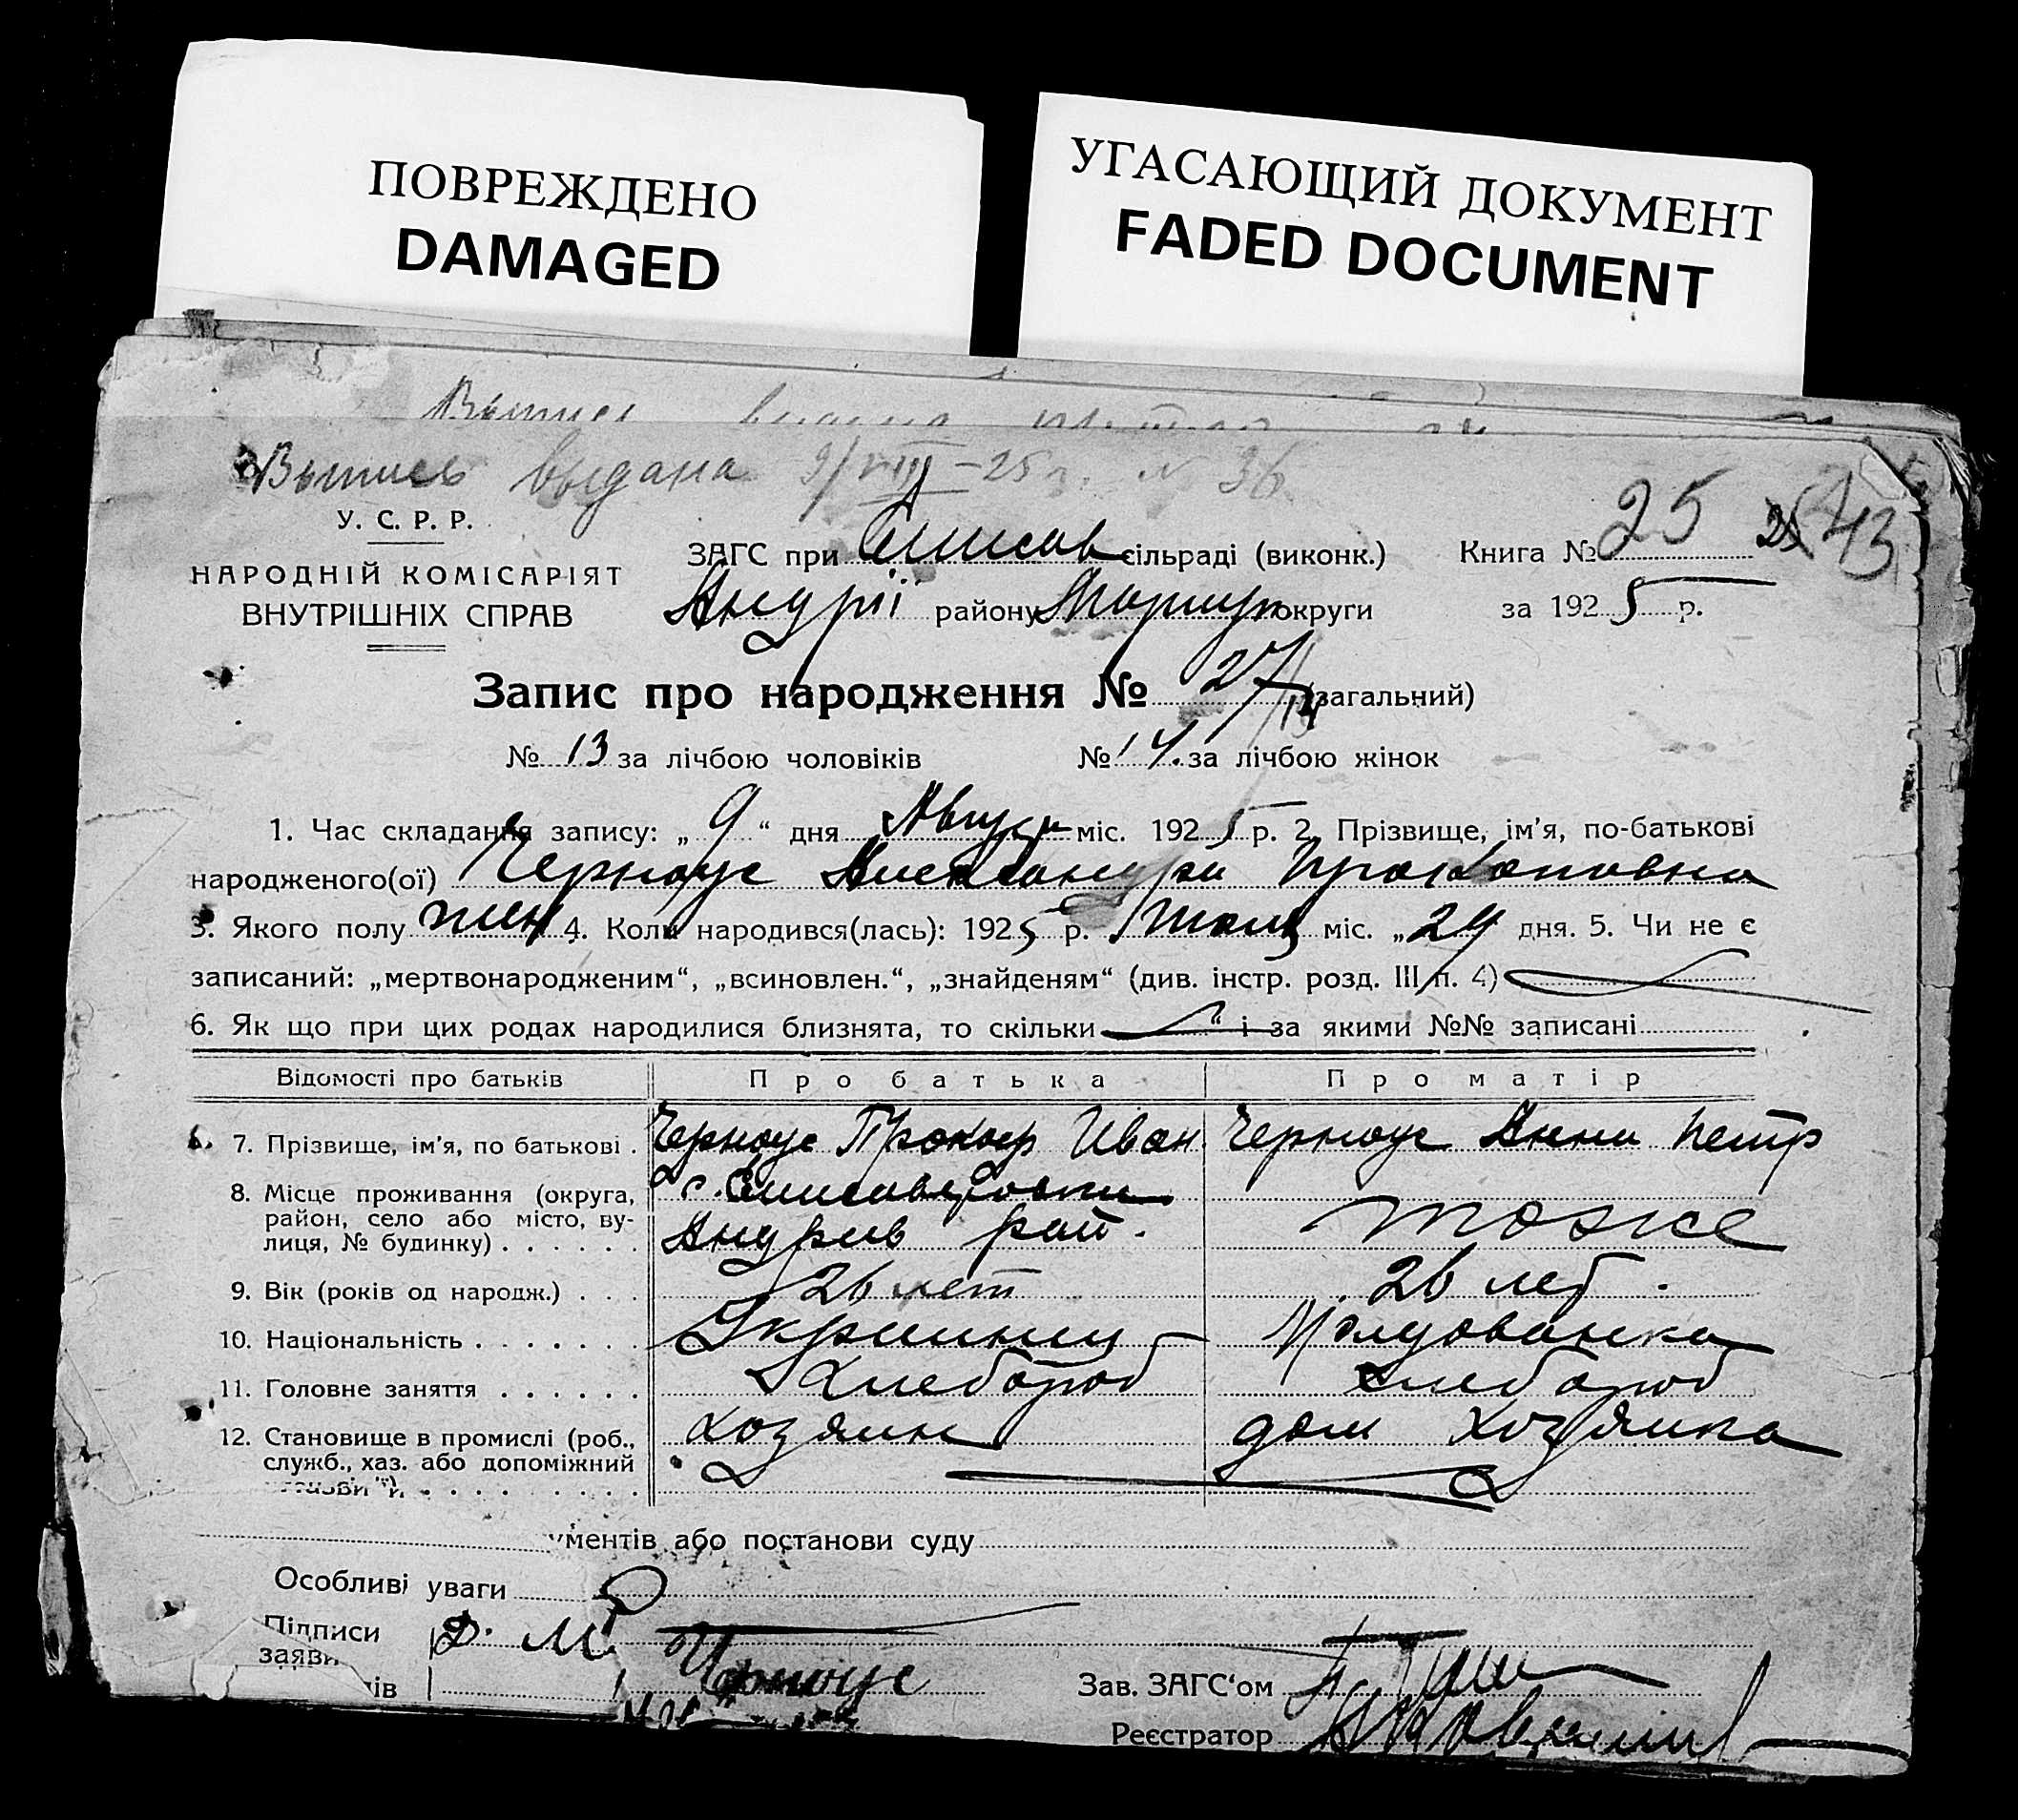 ПОВРЕЖДЕНО
DAMAGED
УГАСАЮЩИЙ ДОКУМЕНТ
FADED DOCUMENT
Выпись выдана 9/VIII–25 г. № 36
25 43
У. С. Р. Р.
НАРОДНІЙ КОМІСАРІЯТ
ВНУТРІШНІХ СПРАВ
ЗАГС при Елисав сільраді (виконк.)
Книга № 25
Андрії району Мариуп округи
за 1925 р.
Запис про народження № 27 (загальний)
№ 13 за лічбою чоловіків № 14 за лічбою жінок
1. Час складання запису: „ 9 “ дня Август міс. 1925 р. 2. Прізвище, ім’я, по-батькові
народженого(ої) Черноус Александра Прокоповна
3. Якого полу жен 4. Коли народився(лась): 1925 р. міс. „ 29 дня. 5. Чи не є
записаний: „мертвонародженим“, „всиновлен.“, „знайденям“ (див. інстр. розд. III п. 4)
6. Як що при цих родах народилися близнята, то скільки “ і за якими №№ записані
Відомості про батьків Про батька Про матір
7. Прізвище, ім’я, по батькові . Черноус Прокоф Иван Черноус Анна Петр
8. Місце проживання (округа,
район, село або місто, ву-
лиця, № будинку) . . . . . .
с. Елисаветовка
Андрив рай. тоже
9. Вік (років од народж.) . . . 26 лет 26 лет.
10. Національність . . . . . . . Украинец Молдованка
11. Головне заняття . . . . . . Хлебороб хлебороб
12. Становище в промислі (роб.,
служб., хаз. або допоміжний
хозяин дом хозяйка
ументів або постанови суду
Особливі уваги
Підписи
заяви
ів
Черноус
Зав. ЗАГС‘ом
Реєстратор